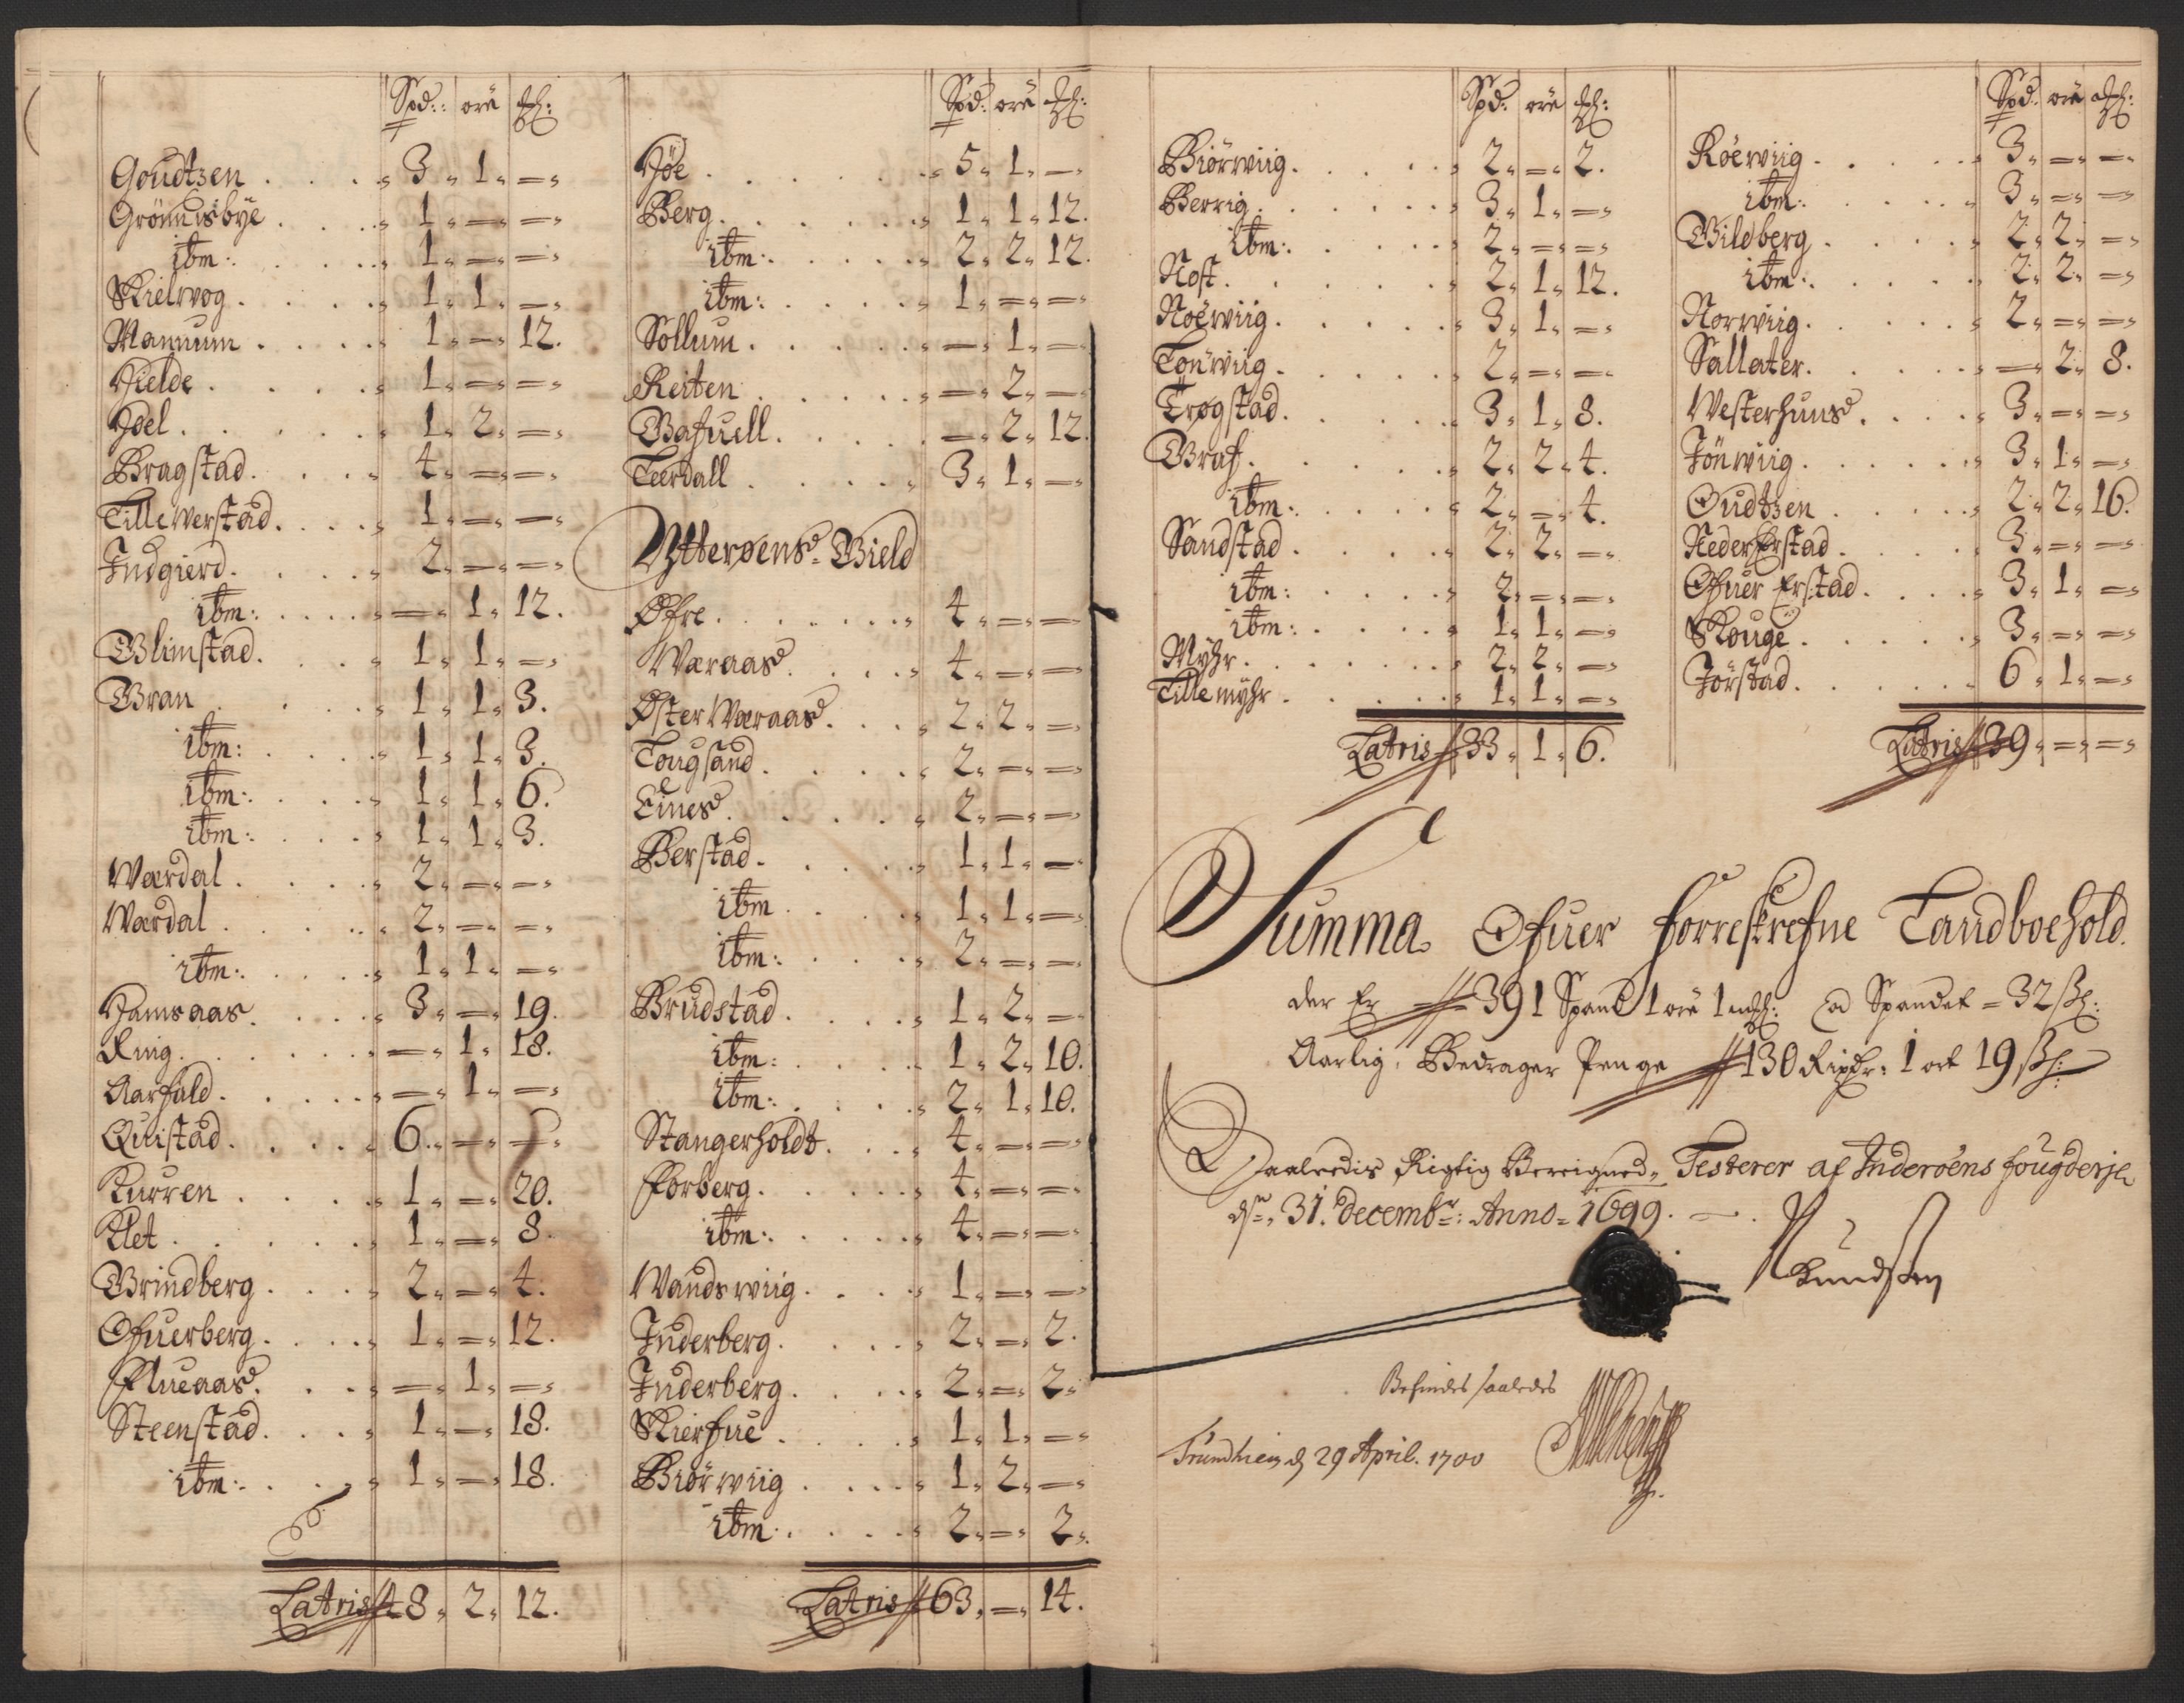 Spd: öre
Goudtzen . . . 3 „ 1 „ =
Grönnisbÿe . . . 1 „ = „ =
ibm: . . . 1 „ = „ =
Skielwog . . . 1 „ 1 „ =
Mannum . . . 1 „ = „ 12.
Hielde . . . 1 „ = „ =
Joel . . . 1 „ 2 „ =
Bragstad . . . 4 „ = „ =
Tillewerstad . . . 1 „ = „ =
Indgierd . . . 2 „ = „ =
ibm: . . . = „ 1 „ 12.
Glimstad . . . 1 „ 1 „ =
Gran . . . 1 „ 1 „ 3.
ibm: . . . 1 „ 1 „ 3.
ibm: . . . 1 „ 1 „ 6.
ibm: . . . 1 „ 1 „ 3.
Wærdal . . . 2 „ = „ =
Wærdal . . . 2 „ = „ =
ibm: . . . 1 „ 1 „ =
Hamsaas . . . 3 „ = „ 19.
Ring . . . = „ 1 „ 18.
Aarfald . . . = „ 1 „ =
Quistad . . . 6 „ = „ =
Kurren . . . 1 „ = „ 20.
Klet . . . 1 „ = „ 8.
Grindberg . . . 2 „ = „ 4.
Ofuerberg . . . 1 „ = „ 12.
Flueaas . . . = „ 1 „ =
Steenstad . . . 1 „ = „ 18.
ibm: . . . 1 „ = „ 18.
Latris 48 „ 2 „ 12.
Spd: öre
Jöe . . . 5 „ 1 „ =
Berg . . . 1 „ 1 „ 12.
ibm: . . . 2 „ 2 „ 12.
ibm: . . . 1 „ = „ =
Sollum . . . = „ 1 „ =
Reiten . . . = „ 2 „ =
Gafuell . . . = „ 2 „ 12.
Teerdall . . . 3 „ 1 „ =
Ytterøens Gield
Øfre . . . 4 „ = „ =
Wæraas . . . 4 „ = „ =
Øster Wæraas . . . 2 „ 2 „ =
Tougsand . . . 2 „ = „ =
Eines . . . 2 „ = „ =
Berstad . . . 1 „ 1 „ =
ibm . . . 1 „ 1 „ =
ibm: . . . 2 „ = „ =
Brudstad . . . 1 „ 2 „ =
ibm: . . . 1 „ 2 „ 10.
ibm: . . . 2 „ 1 „ 10.
Stangerholdt . . . 4 „ = „ =
Forberg . . . 4 „ = „ =
ibm: . . . 4 „ = „ =
Wandswiig . . . 1 „ = „ =
Inderberg . . . 2 „ = „ 2.
Inderberg . . . 2 „ = „ 2.
Skierfue . . . 1 „ 1 „ =
Biörwiig . . . 1 „ 2 „ =
ibm: . . . 2 „ = „ 2.
Latris 63 „ = „ 14.
Spd: öre
Biörwiig . . . 2 „ = „ 2.
Berrig . . . 3 „ 1 „ =
ibm: . . . 2 „ = „ =
Nost . . . 2 „ 1 „ 12.
Nöewiig . . . 3 „ 1 „ =
Tönwiig . . . 2 „ = „ =
Trøgstad . . . 3 „ 1 „ 8.
Graf . . . 2 „ 2 „ 4.
ibm: . . . 2 „ = „ 4.
Sandstad . . . 2 „ 2 „ =
ibm: . . . 2 „ = „ =
ibm: . . . 1 „ 1 „ =
Myhr . . . 2 „ 2 „ =
Tillemÿhr . . . 1 „ 1 „ =
Latris 33 „ 1 „ 6.
Spd: öre
Röewiig . . . 3 „ = „ =
ibm: . . . 3 „ = „ =
Wildberg . . . 2 „ 2 „ =
ibm: . . . 2 „ 2 „ =
Norwiig . . . 2 „ = „ =
Sallater . . . = „ 2 „ 8.
Westerhuns . . . 3 „ = „ =
Jönwiig . . . 3 „ 1 „ =
Oudtzen . . . 2 „ 2 „ 16.
Neder Erstad . . . 3 „ = „ =
Ofuer Erstad . . . 3 „ 1 „ =
Skouge . . . 3 „ = „ =
Jörstad . . . 6 „ 1 „ =
Latris 39 „ = „ =
Summa Ofuer forreskrefne Landboehold
der Er 391 Spand 1 öre 1 mkl: ad Spandet = 32 ß:
Aarlig, Bedrager Penge 130 Rixdr: 1 ort 19 ß:
Saaledis Rigtig Bereigned, Testerer af Inderöens fougderje
dn: 31. Decembr: Anno = 1699.
Knudsen
Befindes saaledes
Trundhiem d 29 April. 1700